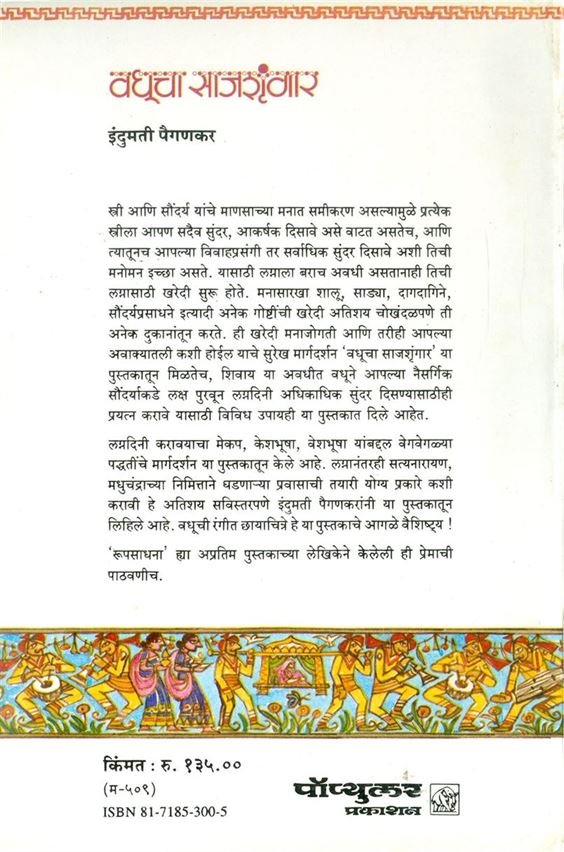 वधूचा साजशृंगार
इंदुमती पैगणकर
स्त्री आणि सौंदर्य यांचे माणसाच्या मनात समीकरण असल्यामुळे प्रत्येक
स्त्रीला आपण सदैव सुंदर, आकर्षक दिसावे असे वाटत असतेच, आणि
त्यातूनच आपल्या विवाहप्रसंगी तर सर्वाधिक सुंदर दिसावे अशी तिची
मनोमन इच्छा असते. यासाठी लग्नाला बराच अवधी असतानाही तिची
लग्नासाठी खरेदी सुरू होते. मनासारखा शालू, साड्या, दागदागिने,
सौंदर्यप्रसाधने इत्यादी अनेक गोष्टींची खरेदी अतिशय चोखंदळपणे ती
अनेक दुकानांतून करते. ही खरेदी मनाजोगती आणि तरीही आपल्या
अवाक्यातली कशी होईल याचे सुरेख मार्गदर्शन ‘वधूचा साजशृंगार’ या
पुस्तकातून मिळतेच, शिवाय या अवधीत वधूने आपल्या नैसर्गिक
सौंदर्याकडे लक्ष पुरवून लग्नदिनी अधिकाधिक सुंदर दिसण्यासाठीही
प्रयत्न करावे यासाठी विविध उपायही या पुस्तकात दिले आहेत.
लग्नदिनी करावयाचा मेकप, केशभूषा, वेशभूषा यांबद्दल वेगवेगळ्या
पद्धतींचे मार्गदर्शन या पुस्तकातून केले आहे. लग्नानंतरही सत्यनारायण,
मधुचंद्राच्या निमित्ताने घडणाऱ्या प्रवासाची तयारी योग्य प्रकारे कशी
करावी हे अतिशय सविस्तरपणे इंदुमती पैगणकरांनी या पुस्तकातून
लिहिले आहे. वधूची रंगीत छायाचित्रे हे या पुस्तकाचे आगळे वैशिष्ट्य !
‘रूपसाधना’ ह्या अप्रतिम पुस्तकाच्या लेखिकेने केलेली ही प्रेमाची
पाठवणीच.
किंमत : रु. १३५.००
(म-५०९)
ISBN 81-7185-300-5
पॉप्युलर
प्रकाशन